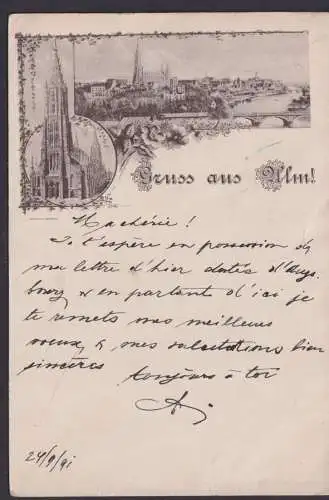 Gruss aus Ulm!
Ma chérie!
Je t'espère en possession de
ma lettre d'hier datée d'Augs
bourg & en partant d'ici je
te remets mes meilleurs
voeux, & mes salutations bien
sincères
toujours à toi
A.
24/9/91